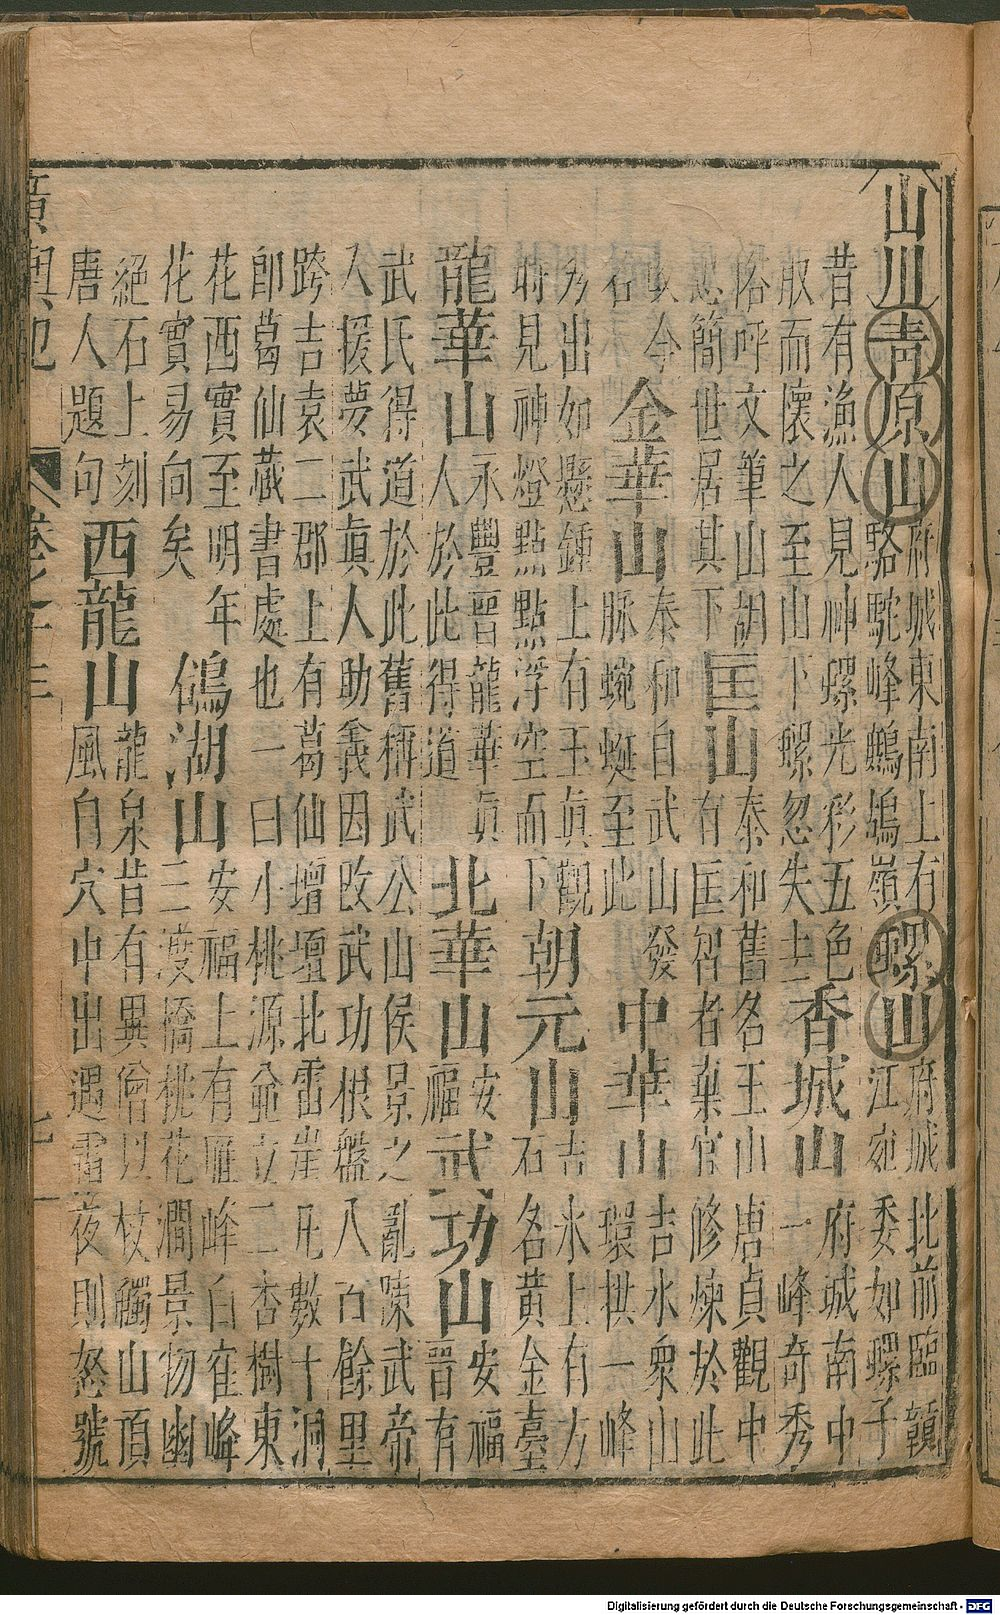 山川青原山府城東南上有
駱駝峰鷓鴣嶺
螺山府城北前臨贛
江宛委如螺子
昔有漁人見神螺光彩五色
取而懷之至山下螺忽失去
香城山府城南中
一峰奇秀
俗呼文筆山胡
忠簡世居其下
匡山泰和舊名王山唐貞觀中
有匡智者棄官修煉於此
以今
名
金華山泰和自武山發
脈蜿蜒至此
中華山吉水衆山
環拱一峰
秀出如懸鍾上有玉真觀
時見神燈點點浮空而下
朝元山吉水上有方
石名黃金臺
龍華山永豐晉龍華真
人於此得道
北華山安
福
武功山安福
晉有
武氏得道於此舊稱武公山侯景之亂陳武帝
入援夢武真人助義因改武功根盤八百餘里
跨吉袁二郡上有葛仙壇壇北雷崖凡數十洞
即葛仙藏書處也一曰小桃源並立二杏樹東
花西實至明年
花實易向矣
鴿湖山安福上有雁峰白隺峰
三渡橋桃花澗景物幽
絕石上刻
唐人題句
西龍山龍泉昔有異僧以杖觸山頂
風自穴中出遇霜夜則怒號
廣輿記 卷之十三
Digitalisierung gefördert durch die Deutsche Forschungsgemeinschaft - DFG